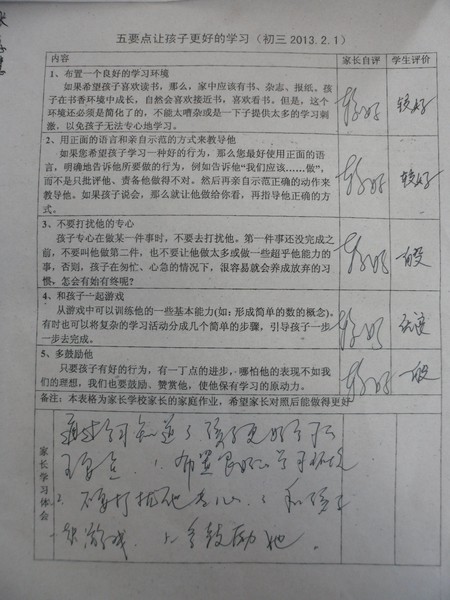 五要点让孩子更好的学习（初三 2013.2.1）
内容 家长自评 学生评价
1、布置一个良好的学习环境
如果希望孩子喜欢读书，那么，家中应该有书、杂志、报纸。孩
子在书香环境中成长，自然会喜欢接近书，喜欢看书，但是，这个
环境还必须是简化了的，不能太嘈杂或是一下子提供太多的学习刺
激，以免孩子无法专心地学习。
较好 较好
2、用正面的语言和亲自示范的方式来教导他
如果您希望孩子学习一种好的行为，那么您最好使用正面的语
言，明确地告诉他所要做的行为，例如告诉他“我们应该……做”，
而不是只批评他、责备他做得不对。然后再亲自示范正确的动作来
教导他。如果孩子说会，那么就让他做给你看，再指导他正确的方
式。
较好 较好
3、不要打扰他的专心
孩子专心在做某一件事时，不要去打扰他。第一件事还没完成之
前，不要叫他做第二件，也不要让他做太多或做一些超乎他能力的
事，否则，孩子在匆忙、心急的情况下，很容易就会养成放弃的习
惯，怎会有始有终呢？
较好 一般
4、和孩子一起游戏
从游戏中可以训练他的一些基本能力(如：形成简单的数的概念)。
有时也可以将复杂的学习活动分成几个简单的步骤，引导孩子一步
一步去完成。
较好
5、多鼓励他
只要孩子有好的行为，有一丁点的进步，哪怕他的表现不如我
们的理想，我们也要鼓励、赞赏他，使他保有学习的原动力。
较好 一般
备注：本表格为家长学校家长的家庭作业，希望家长对照后能做得更好
家长学习体会
通过学习知道了孩子更好学习
布置良好的学习环境
2. 不要打扰他专心 和孩子
一起游戏 多鼓励他。